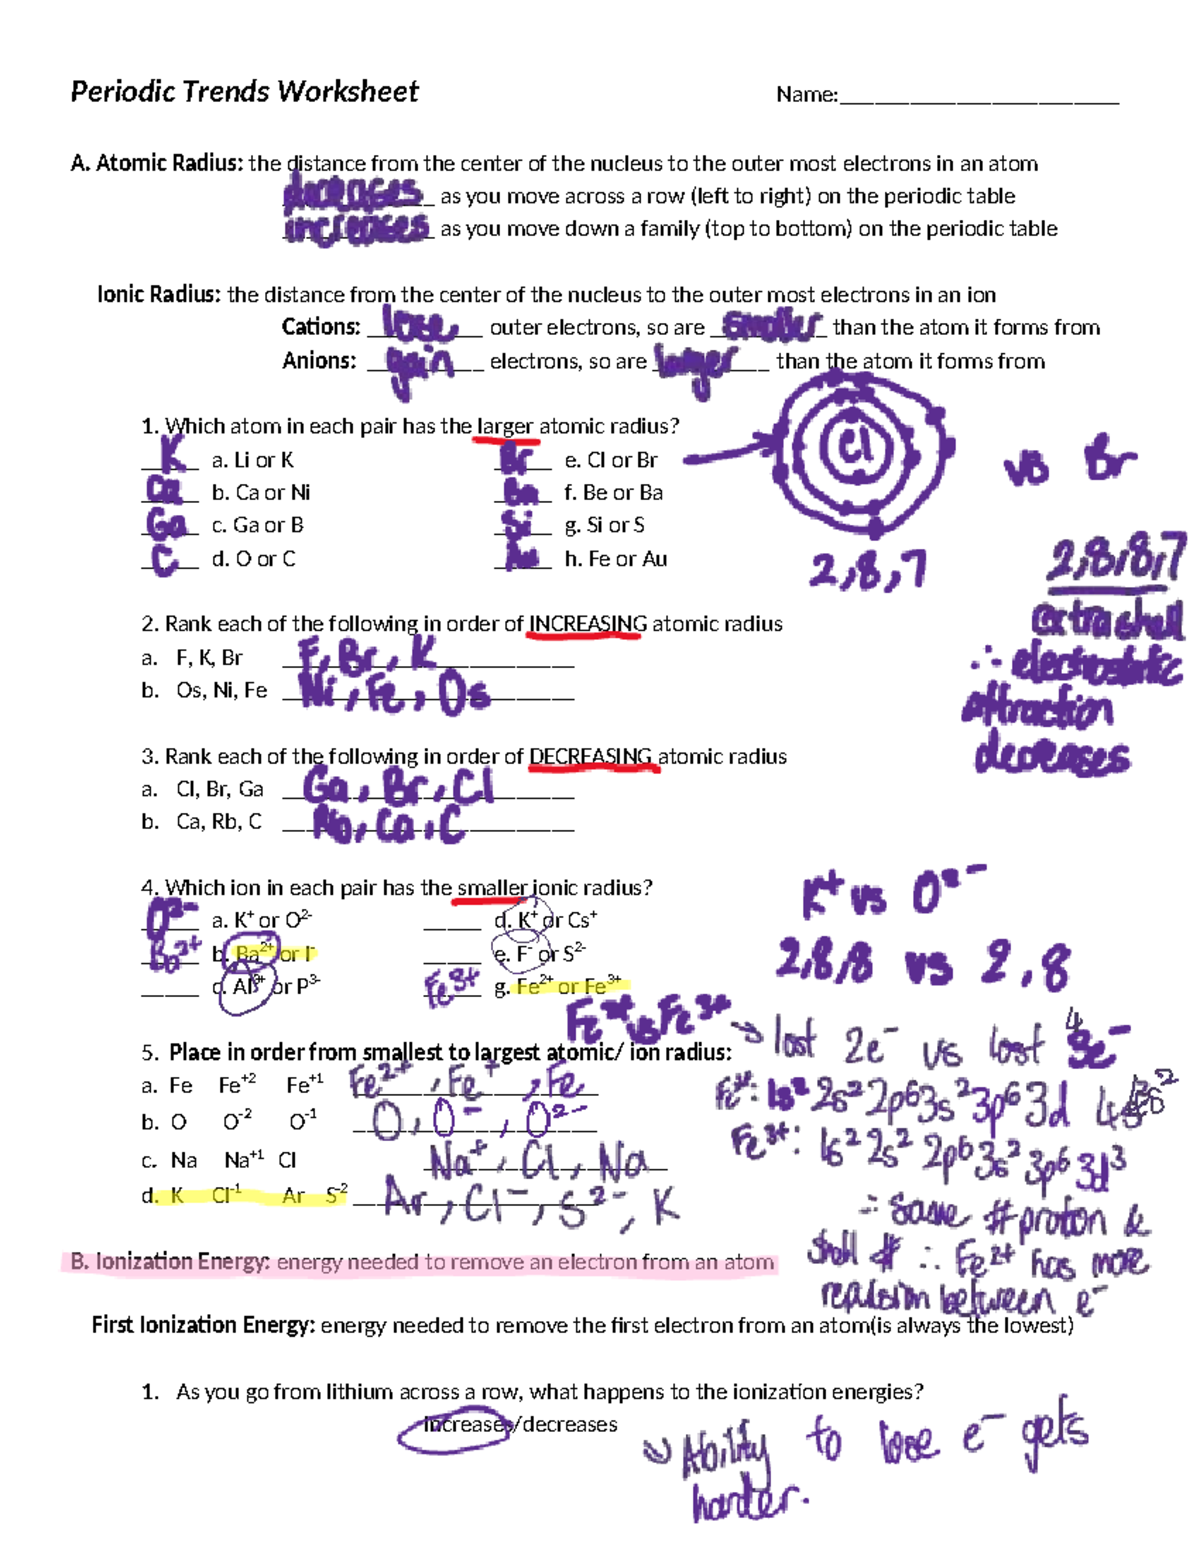 Periodic Trends Worksheet Name:
A. Atomic Radius: the distance from the center of the nucleus to the outer most electrons in an atom
decreases as you move across a row (left to right) on the periodic table
increases as you move down a family (top to bottom) on the periodic table
Ionic Radius: the distance from the center of the nucleus to the outer most electrons in an ion
Cations: lose outer electrons, so are smaller than the atom it forms from
Anions: gain electrons, so are larger than the atom it forms from
1. Which atom in each pair has the larger atomic radius?
K a. Li or K Br e. Cl or Br
Ca b. Ca or Ni Ba f. Be or Ba
Ga c. Ga or B Si g. Si or S
C d. O or C Au h. Fe or Au
Cl vs Br
2,8,7 2,8,8,7
extra shell
∴ electrostatic
attraction
decreases
2. Rank each of the following in order of INCREASING atomic radius
a. F, K, Br F, Br, K
b. Os, Ni, Fe Ni, Fe, Os
3. Rank each of the following in order of DECREASING atomic radius
a. Cl, Br, Ga Ga, Br, Cl
b. Ca, Rb, C Rb, Ca, C
4. Which ion in each pair has the smaller ionic radius?
O²⁻ a. K⁺ or O²⁻ d. K⁺ or Cs⁺
Ba²⁺ b. Ba²⁺ or I⁻ e. F⁻ or S²⁻
d. Al³⁺ or P³⁻ Fe³⁺ g. Fe²⁺ or Fe³⁺
K⁺ vs O²⁻
2,8,8 vs 2,8
Fe²⁺ vs Fe³⁺ → lost 2e⁻ vs lost 3e⁻
5. Place in order from smallest to largest atomic/ ion radius:
a. Fe Fe⁺² Fe⁺¹ Fe²⁺, Fe⁺, Fe
b. O O⁻² O⁻¹ O, O⁻, O²⁻
c. Na Na⁺¹ Cl Na⁺, Cl, Na
d. K Cl⁻¹ Ar S⁻² Ar, Cl⁻, S²⁻, K
Fe²⁺: 1s² 2s² 2p⁶ 3s² 3p⁶ 3d
Fe³⁺: 1s² 2s² 2p⁶ 3s² 3p⁶ 3d³
∴ same # proton &
shell # ∴ Fe²⁺ has more
repulsion between e⁻
B. Ionization Energy: energy needed to remove an electron from an atom
First Ionization Energy: energy needed to remove the first electron from an atom(is always the lowest)
1. As you go from lithium across a row, what happens to the ionization energies?
increases/decreases
Ability to lose e⁻ gets
harder.